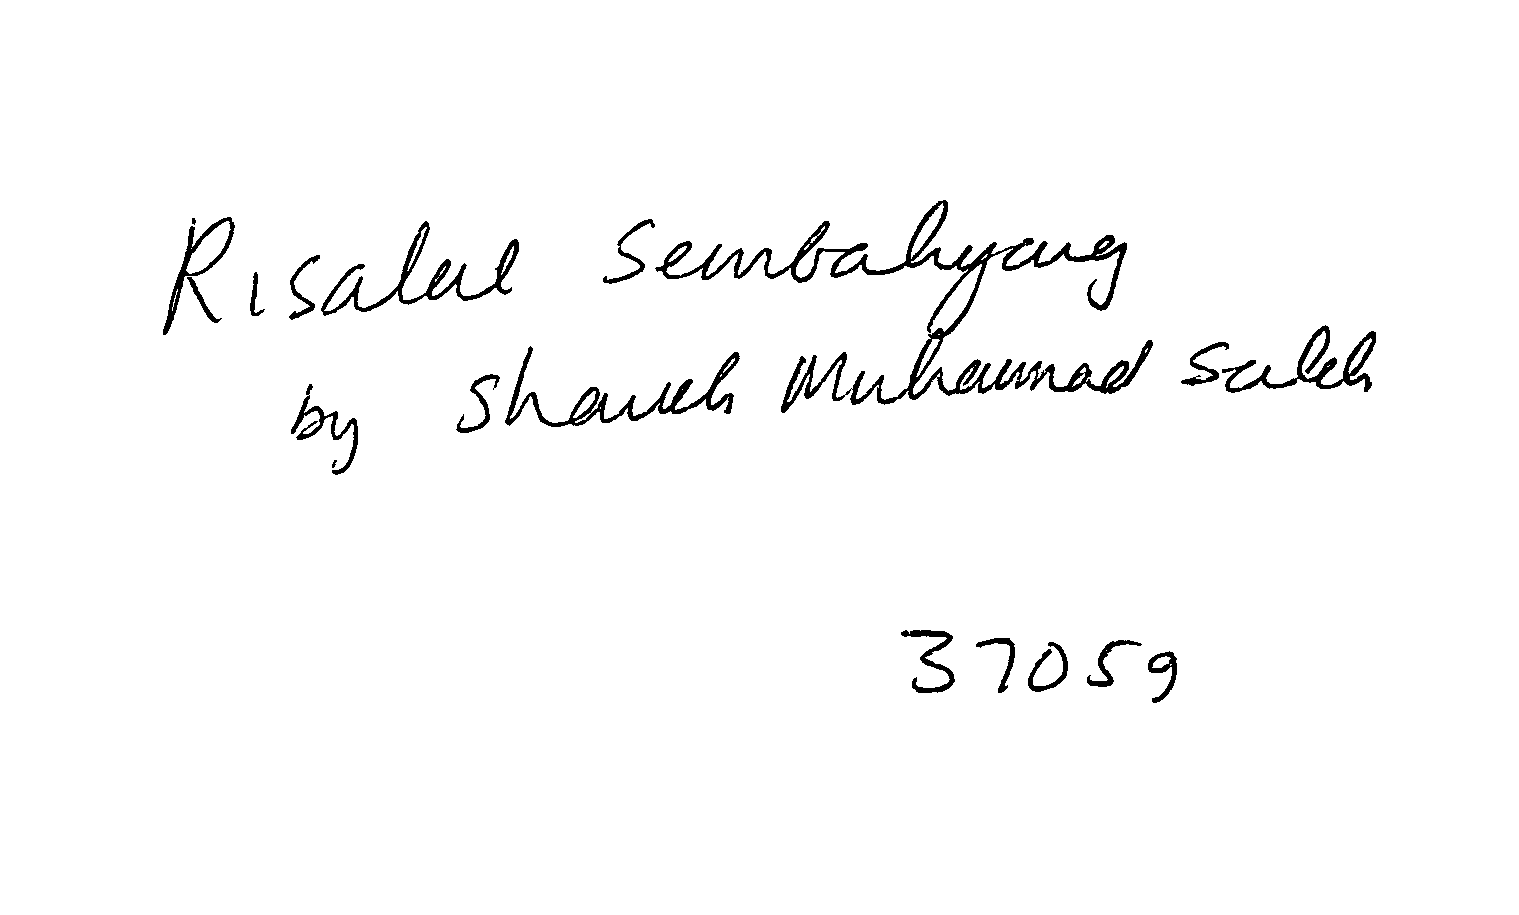 Risalat Sembahyang
by Shaikh Muhammad Saleh
37059